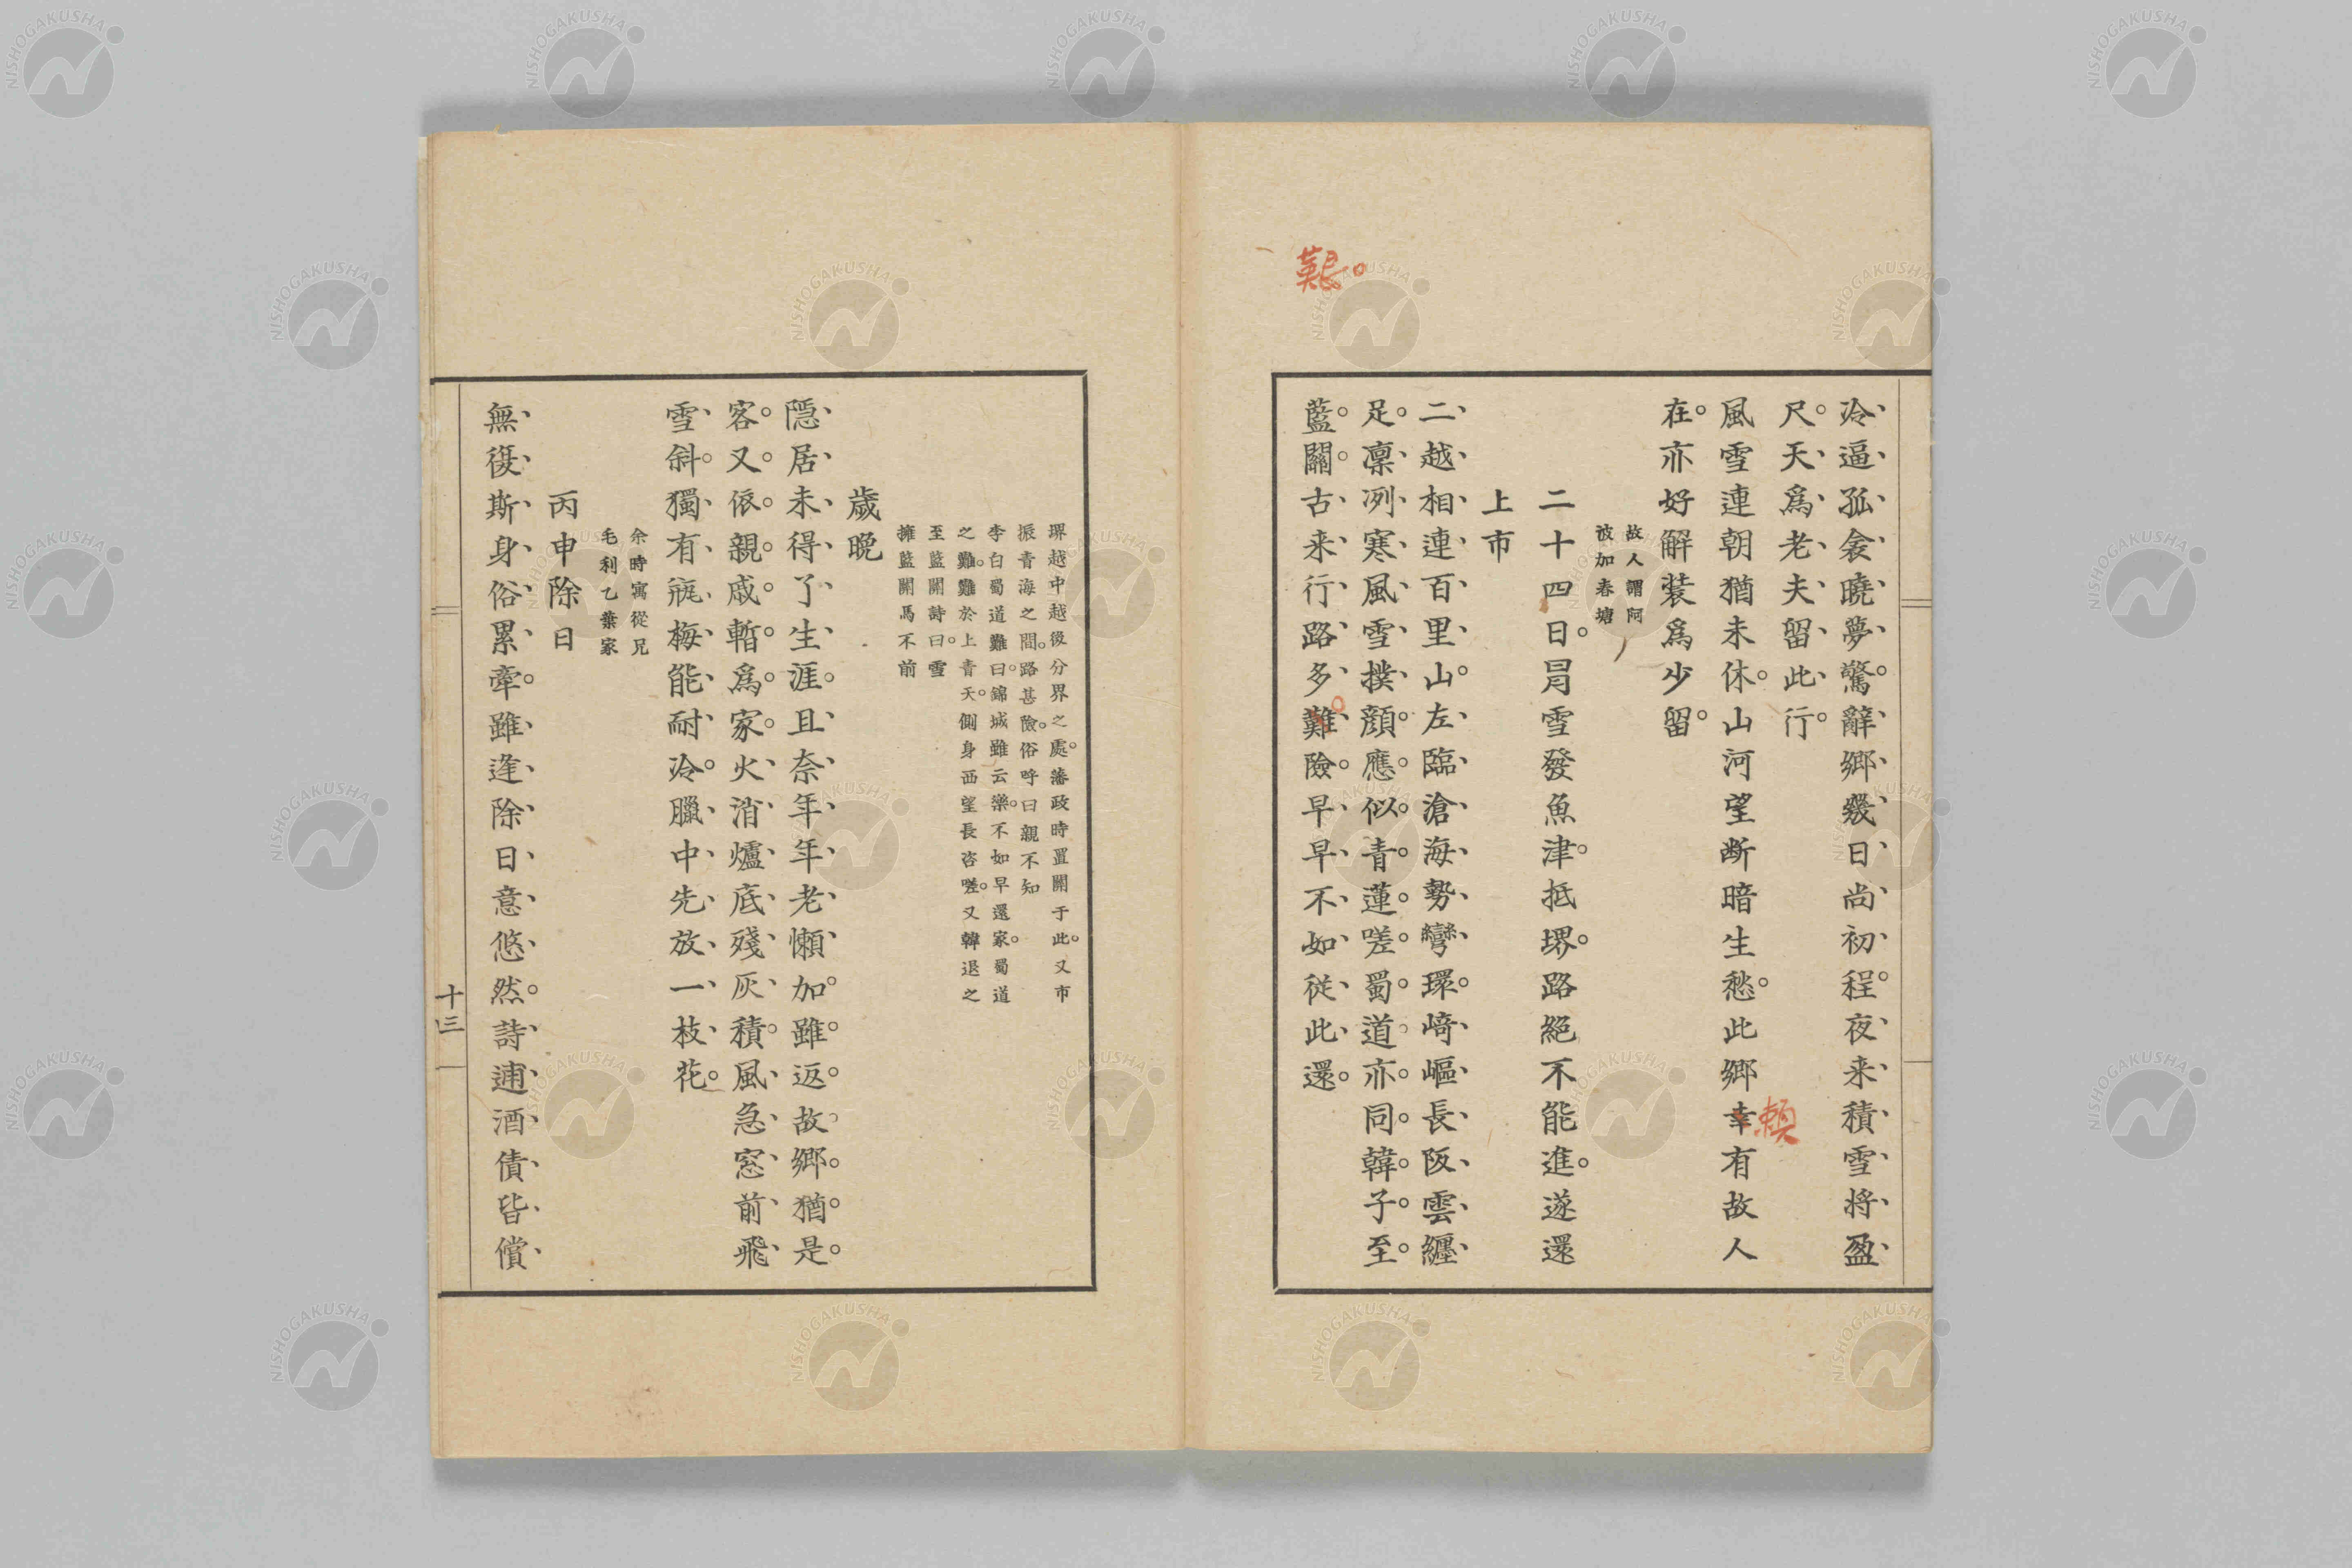 冷逼孤衾曉夢驚。辭鄉幾日尚初程。夜来積雪将盈
尺。天爲老夫留此行。
風雪連朝猶未休。山河望断暗生愁。此鄉幸有故人
賴
在。亦好解装爲少留。
故人謂阿
波加春塘
二十四日。冐雪發魚津。抵堺。路絕不能進。遂還
上市
二越相連百里山。左臨滄海勢彎環。崎嶇長阪雲纒
足。凛冽寒風雪撲顔。應似青蓮嗟蜀道。亦同韓子至
藍關。古来行路多難險。早早不如従此還。
艱。
堺越中越後分界之處。藩政時置關于此。又市
振青海之間。路甚險。俗呼曰親不知
李白蜀道難曰。錦城雖云樂。不如早還家。蜀道
之難。難於上青天。側身西望長咨嗟。又韓退之
至藍關詩曰。雪
擁藍關馬不前
歳晩
隠居未得了生涯。且奈年年老懶加。雖返故鄉猶是
客。又依親戚暫爲家。火消爐底殘灰積。風急窓前飛
雪斜。獨有瓶梅能耐冷。臘中先放一枝花。
余時寓從兄
毛利乙葉家
丙申除日
無復斯身俗累牽。雖逢除日意悠然。詩逋酒債皆償
十三
NISHOGAKUSHA